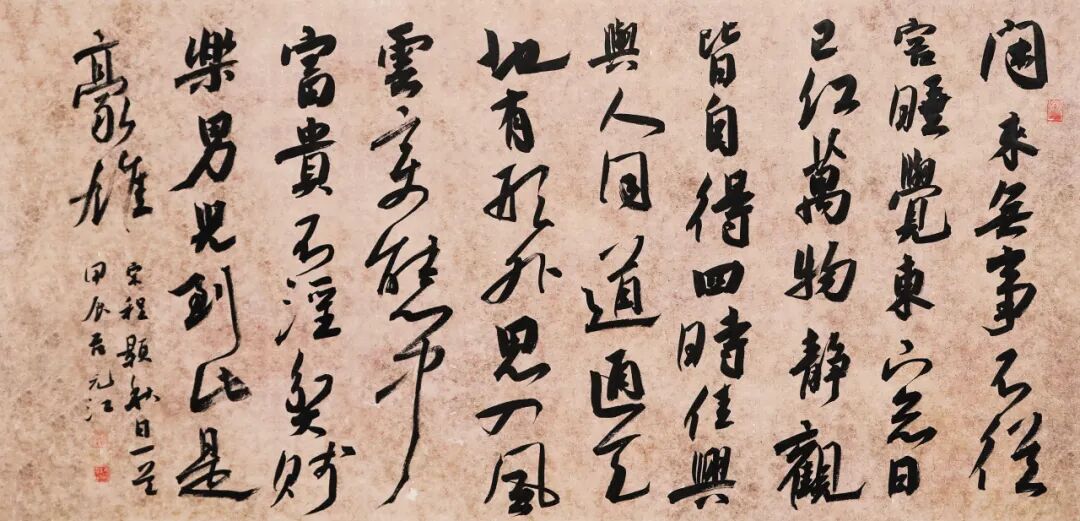 闲来無事不從
容睡覺東窗日
已紅萬物静觀
皆自得四時佳興
與人同道通天
地有形外思入風
雲變態中
富貴不淫貧賤
樂男兒到此是
豪雄
宋程顥秋日一首
甲辰元江